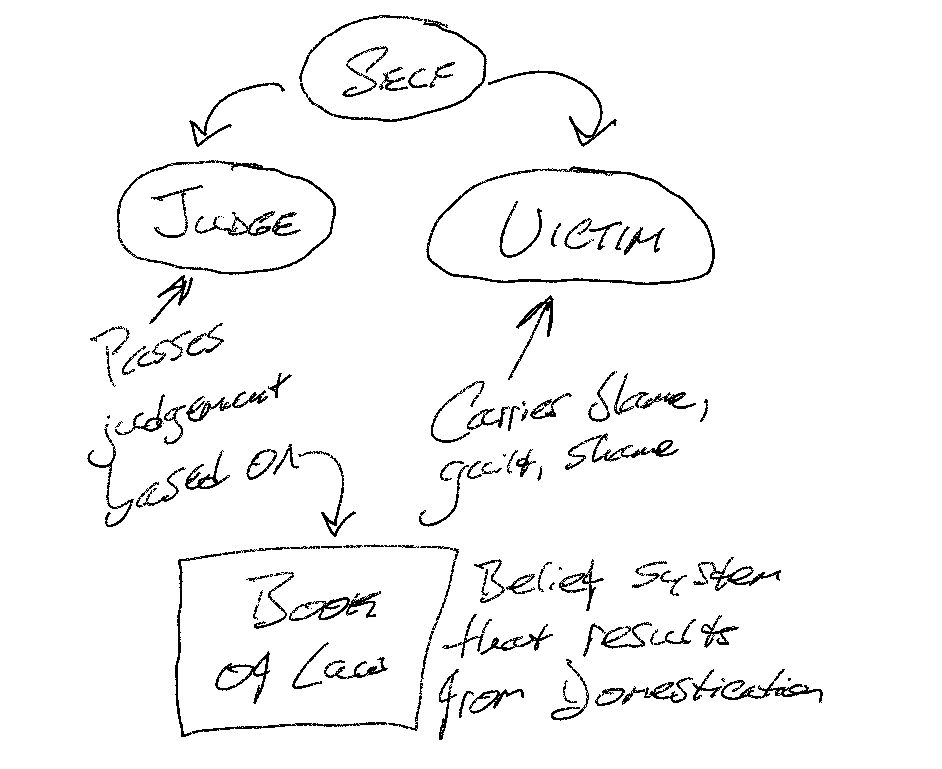 SELF
JUDGE
VICTIM
Passes
judgement
based on
Carries blame,
guilt, shame
BOOK
of Law
Belief system
that results
from Domestication